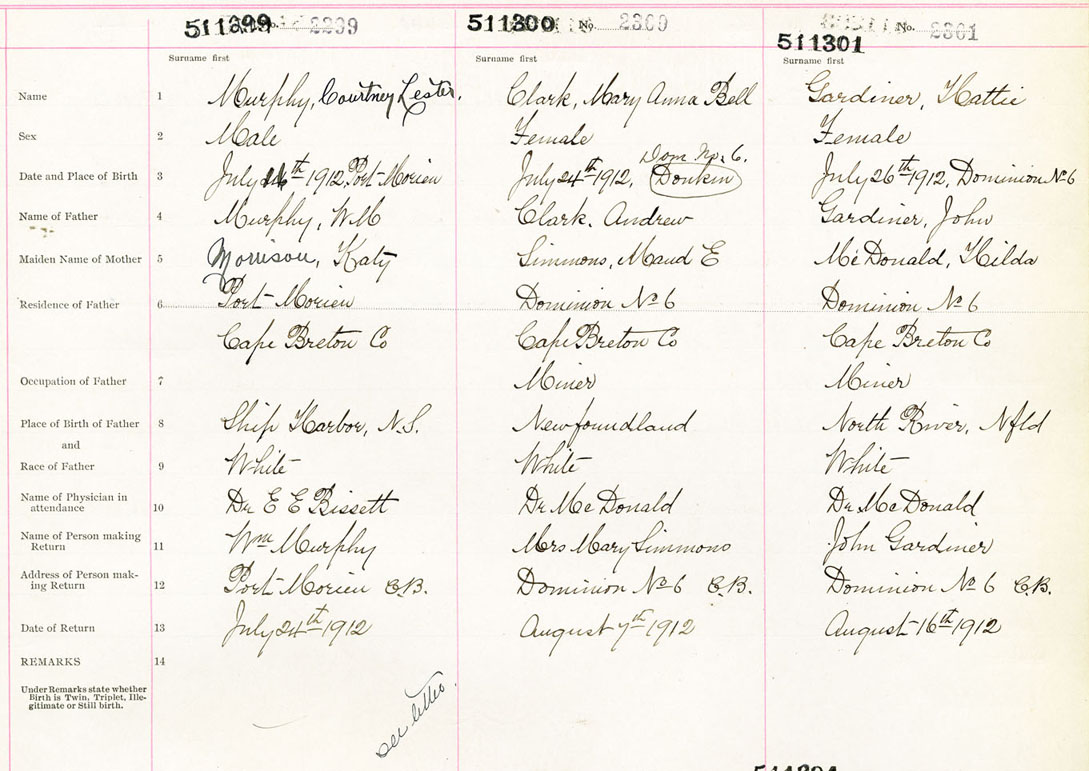 511299 No. 2299
511300 No. 2300
511301 No. 2301
Surname first Surname first Surname first
Name 1 Murphy, Courtney Lester. Clark, Mary Anna Bell Gardiner, Hattie
Sex 2 Male Female Female
Dom No. 6.
Date and Place of Birth 3 July 1912, Port-Morien July 24th 1912, Donkin July 26th 1912, Dominion No 6
Name of Father 4 Murphy, WM Clark. Andrew Gardiner, John
Maiden Name of Mother 5 Morrison, Katy Simmons, Maud E McDonald, Hilda
Residence of Father 6 Port-Morien Dominion No 6 Dominion No 6
Cape Breton Co Cape Breton Co Cape Breton Co
Occupation of Father 7 Miner Miner
Place of Birth of Father 8 Ship Harbor, N.S. Newfoundland North River, Nfld
and
Race of Father 9 White White White
Name of Physician in attendance 10 Dr E E Bissett Dr McDonald Dr McDonald
Name of Person making Return 11 Wm Murphy Mrs Mary Simmons John Gardiner
Address of Person mak-ing Return 12 Port-Morien C.B. Dominion No 6 C.B. Dominion No 6 C.B.
Date of Return 13 July 24th 1912 August 7th 1912 August 16th 1912
REMARKS 14
Under Remarks state whether
Birth is Twin, Triplet, Ille-
gitimate or Still birth.
see letter